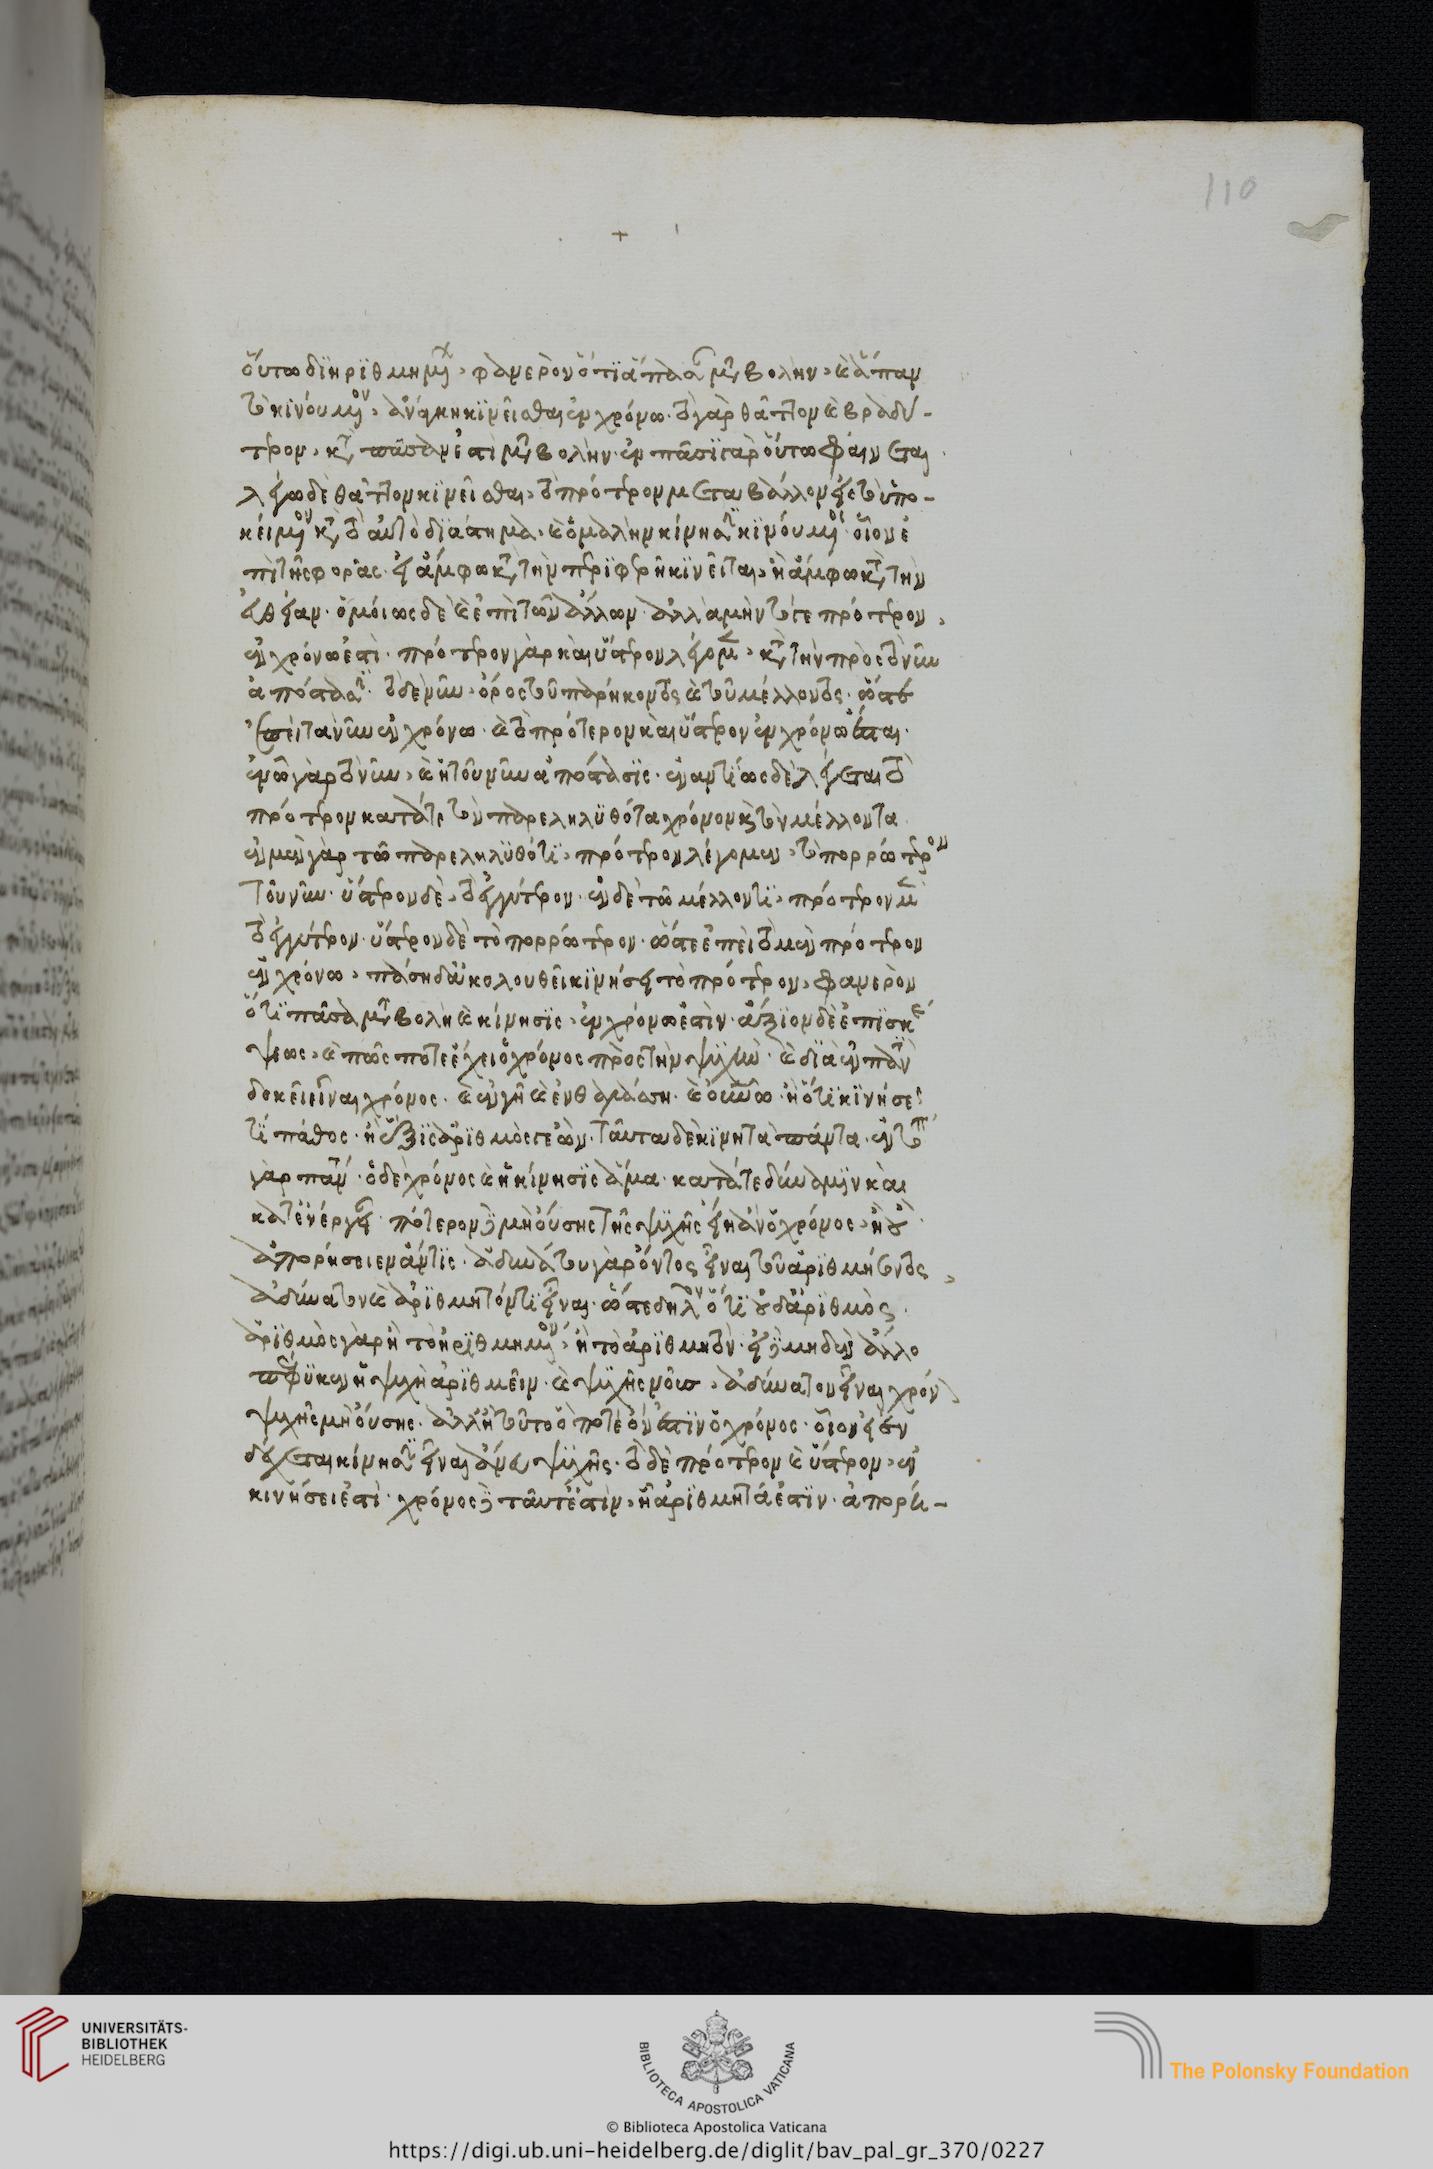 οὕτω διηριθμημένων, φανερὸν ὅτι ἅπασαν μεταβολὴν, καὶ ἅπαν
τὸ κινούμενον, ἀνάγκη κινεῖσθαι ἐν χρόνω. τὸ γὰρ θᾶττον καὶ βραδύ-
τερον, κατὰ πᾶσαν ἐστὶ μεταβολήν. ἐν πᾶσι γὰρ οὕτω φαίνεται.
λέγω δὲ θᾶττον κινεῖσθαι, τὸ πρότερον μεταβάλλον εἰς τὸ ὑπο-
κείμενον κατὰ τὸ αὐτὸ διάστημα, καὶ ὁμαλὴν κίνησιν κινούμενον. οἷον ἐ
πὶ τῆς φορᾶς. εἰ ἄμφω κατὰ τὴν περιφερῆ κινεῖται, ἢ ἄμφω κατὰ τὴν
εὐθεῖαν. ὁμοίως δὲ καὶ ἐπὶ τῶν ἄλλων. ἀλλὰ μὴν τό τε πρότερον,
ἐν χρόνω ἐστί. πρότερον γὰρ καὶ ὕστερον λέγομεν, κατὰ τὴν πρὸς τὸ νῦν
ἀπόστασιν. τὸ δὲ νῦν, ὅρος τοῦ παρήκοντος καὶ τοῦ μέλλοντος. ὥστε
ἐπεὶ τὰ νῦν ἐν χρόνω. καὶ τὸ πρότερον καὶ ὕστερον ἐν χρόνω ἔσται.
ἐν ᾧ γὰρ τὸ νῦν, καὶ ἡ τοῦ νῦν ἀπόστασις. ἐναντίως δὲ λέγεται τὸ
πρότερον κατά τε τὸν παρεληλυθότα χρόνον καὶ τὸν μέλλοντα.
ἐν μὲν γὰρ τῶ παρεληλυθότι, πρότερον λέγομεν, τὸ πορρώτερον
τοῦ νῦν. ὕστερον δὲ, τὸ ἐγγύτερον. ἐν δὲ τῶ μέλλοντι, πρότερον μὲν
τὸ ἐγγύτερον. ὕστερον δὲ τὸ πορρώτερον. ὥστε ἐπεὶ τὸ μὲν πρότερον
ἐν χρόνω, πάση δ' ἀκολουθεῖ κινήσει τὸ πρότερον, φανερὸν
ὅτι πᾶσα μεταβολὴ καὶ κίνησις, ἐν χρόνω ἐστίν. ἄξιον δὲ ἐπισκέ
ψεως, καὶ πῶς ποτε ἔχει ὁ χρόνος πρὸς τὴν ψυχὴν. καὶ διὰ τί ἐν παντὶ
δοκεῖ εἶναι χρόνος. καὶ ἐν γῆ καὶ ἐν θαλάσση. καὶ οὐρανῶ. ἢ ὅτι κινήσεώς
τι πάθος. ἢ ἕξις ἀριθμός γε ὤν. ταῦτα δὲ κινητὰ πάντα. ἐν τόπω
γὰρ πάντα. ὁ δὲ χρόνος καὶ ἡ κίνησις ἅμα. κατά τε δύναμιν καὶ
κατ' ἐνέργειαν. πότερον δὲ μὴ οὔσης τῆς ψυχῆς εἴη ἂν ὁ χρόνος, ἢ οὒ
ἀπορήσειεν ἄν τις. ἀδυνάτου γὰρ ὄντος εἶναι τοῦ ἀριθμήσοντος,
ἀδύνατον καὶ ἀριθμητόν τι εἶναι. ὥστε δηλονότι οὐδ' ἀριθμός.
ἀριθμὸς γὰρ ἢ τὸ ἠριθμημένον, ἢ τὸ ἀριθμητόν. εἰ δὲ μηδὲν ἄλλο
πέφυκεν ἢ ψυχὴ ἀριθμεῖν. καὶ ψυχῆς νοῦς, ἀδύνατον εἶναι χρόνον
ψυχῆς μὴ οὔσης. ἀλλ' ἢ τοῦτο ὅ ποτε ὄν ἐστιν ὁ χρόνος. οἷον εἰ ἐν
δέχεται κίνησιν εἶναι ἄνευ ψυχῆς. τὸ δὲ πρότερον καὶ ὕστερον, ἐν
κινήσει ἐστί. χρόνος δὲ ταῦτ' ἐστίν, ᾗ ἀριθμητά ἐστιν. ἀπορή-
110
UNIVERSITÄTS-
BIBLIOTHEK
HEIDELBERG
BIBLIOTECA APOSTOLICA VATICANA
The Polonsky Foundation
© Biblioteca Apostolica Vaticana
https://digi.ub.uni-heidelberg.de/diglit/bav_pal_gr_370/0227